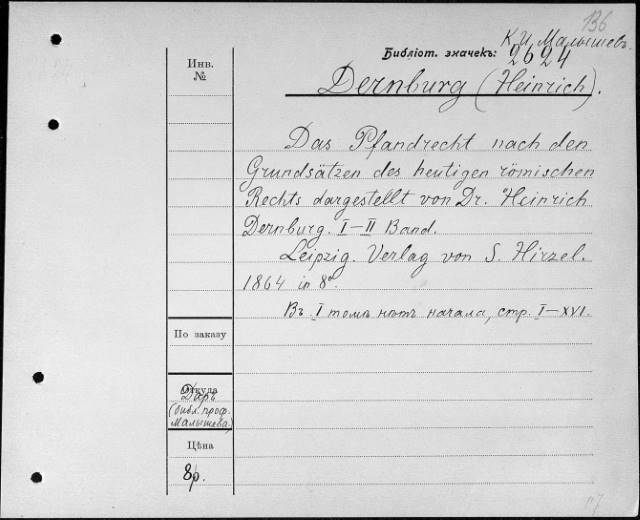 136
К. И. Малышевъ.
Инв.
№
Библіот. значекъ: 2624
Dernburg (Heinrich).
Das Pfandrecht nach den
Grundsätzen des heutigen römischen
Rechts dargestellt von Dr. Heinrich
Dernburg. I–II Band.
Leipzig. Verlag von S. Hirzel.
1864 in 8°.
Въ I томѣ нѣтъ начала, стр. I–XVI.
По заказу
Откуда
Даръ
(библ. проф.
Малышева)
Цѣна
8р.